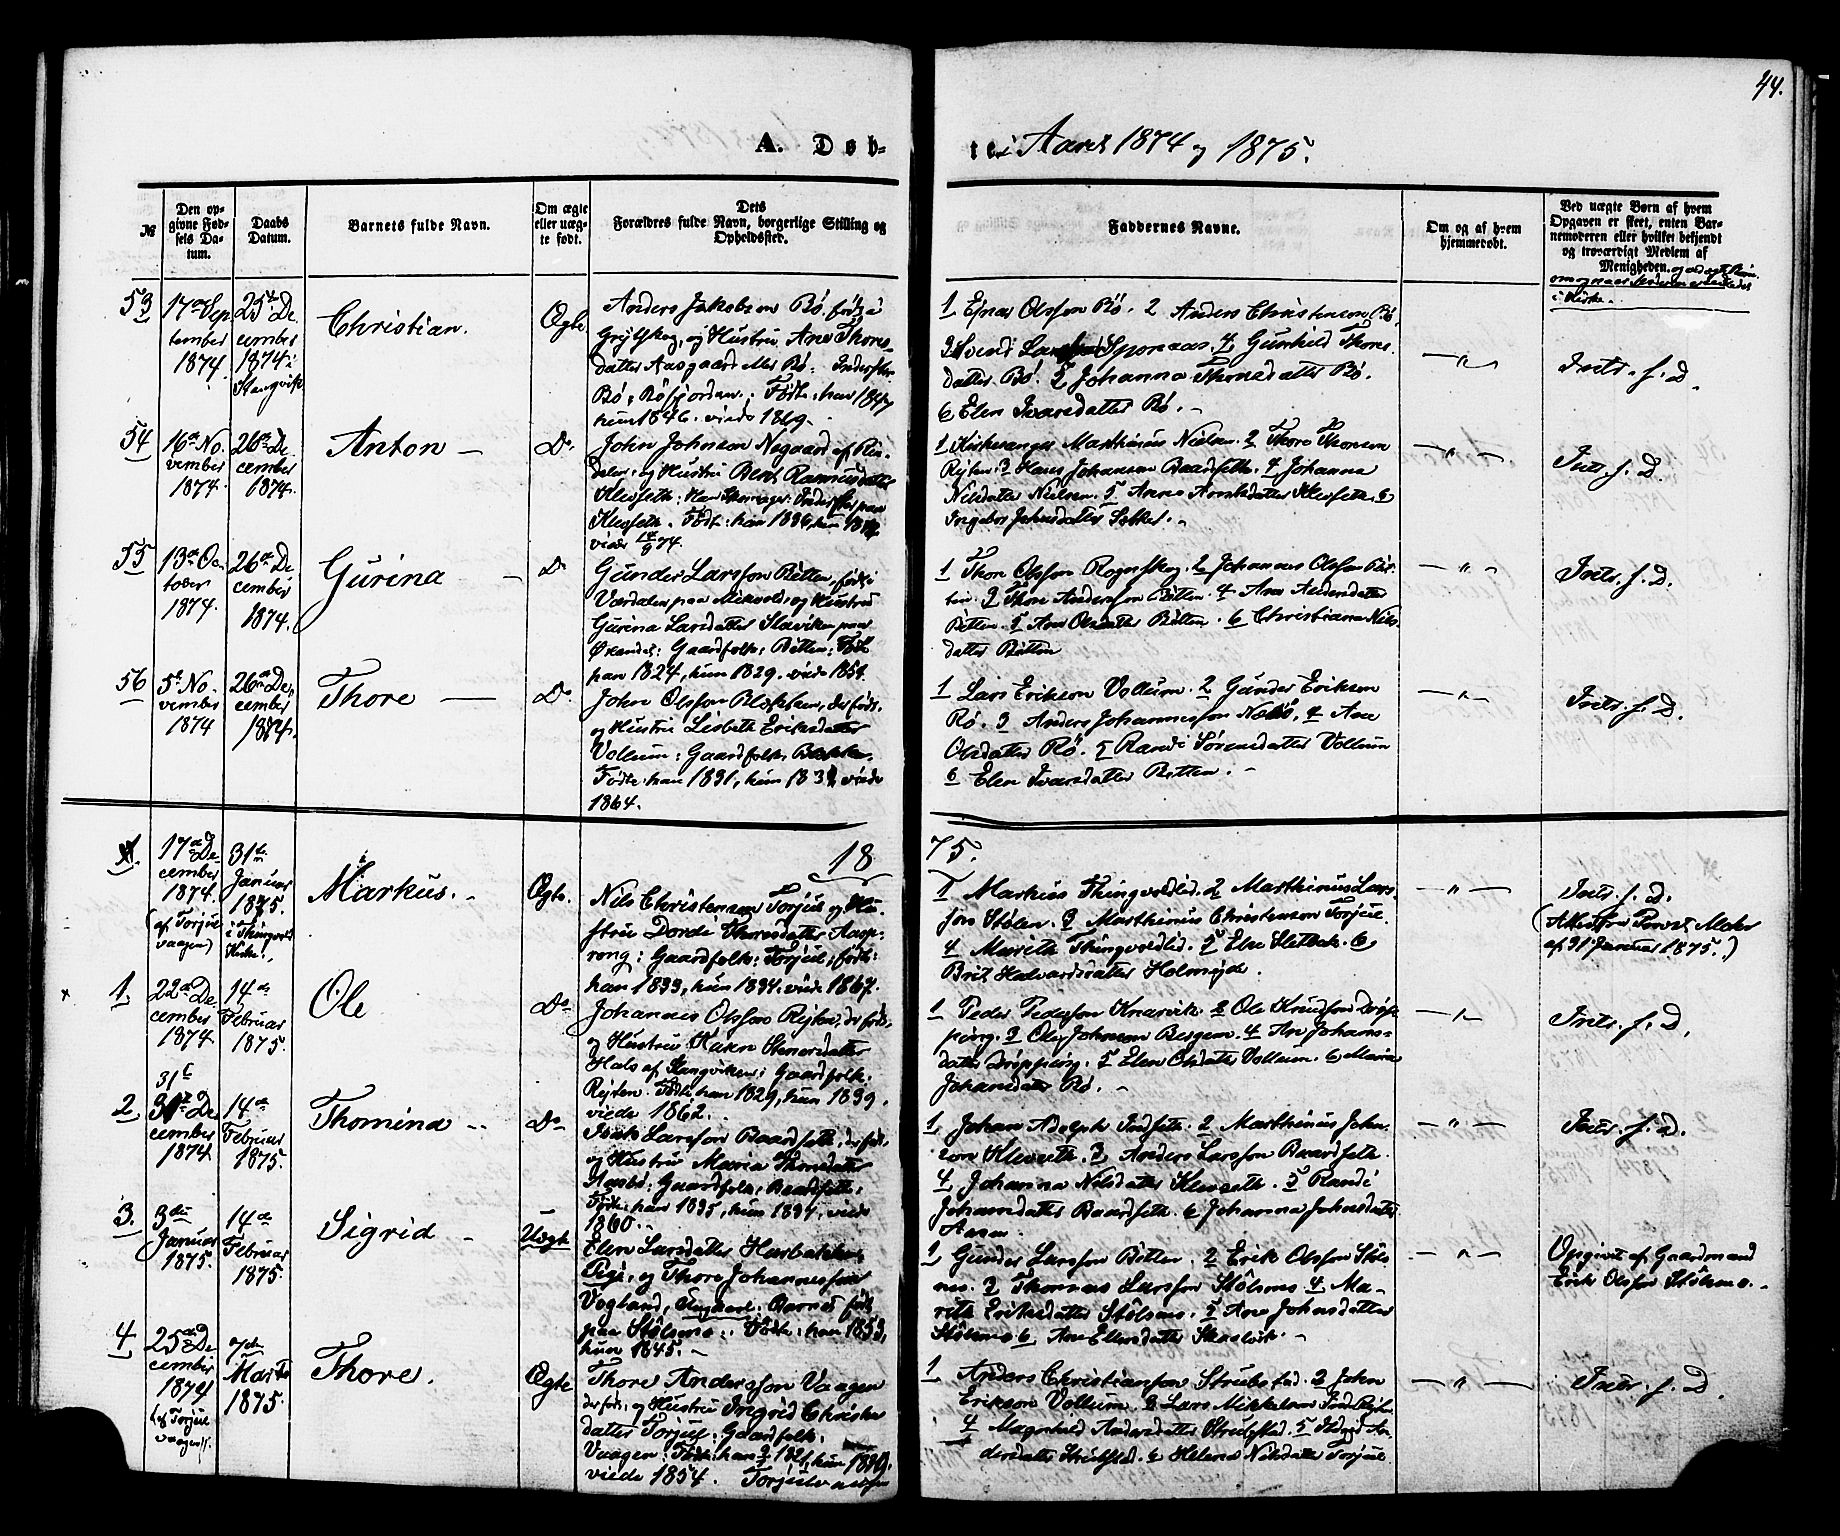 44.
A. Døb-
te i Aaret 1874 og 1875.
№
Den op-
givne Fød-
sels Da-
tum.
Daabs
Datum.
Barnets fulde Navn.
Om ægte
eller uæg-
te født.
Dets
Forældres fulde Navn, borgerlige Stilling og
Opholdssted.
Faddernes Navne.
Om og af hvem
hjemmedøbt.
Ved uægte Børn af hvem
Opgaven er skeet, enten Bar-
nemoderen eller hvilket bekjendt
og troværdigt Medlem af
Menigheden.
i Kirke.
53
17de Sep-
tember
1874.
25de De-
cember
1874 i
Stangvik
Christian.
Ægte
Anders Jakobsen Bø, født i
og Hustru Ane Thores-
datter Aasgaard eller Bø: Inderster
Bø i Bøfjorden: Fødte: han 1847
hun 1846. viede 1869.
1 Ejnar Olsson Bø. 2 Anders Christenson Bø.
3 Svend Sporenaas. 4 Gunhild Thores-
datter Bø. 5 Johanna Thoresdatter Bø.
6 Elen Ivarsdatter Bø.
— " —
Intr. f. D.
54
16de No-
vember
1874.
26de De-
cember
1874.
Anton —
Do
John Johnson Negaard af Rin-
dalen: og Hustru Berit Rasmusdatter
Klevseth: Han Skomager: Inderster paa
Klevseth. Fødte: han 1836, hun
viede 14/9 74.
1 Kirkesanger Marthinus Nielsen. 2 Thore Thoreson
Rejten. 3 Hans Johanson Baardseth. 4 Johanna
Nilsdatter Nielsen. 5 Anne Arntsdatter Klevseth. 6
Ingebor Johnsdatter
— " —
Intr. f. D.
55
13de Oc-
tober
1874.
26de De-
cember
1874.
Gurina —
Do
Gunder Larsson Bøtten, født i
Værdalen paa og Hustru
Gurina Larsdatter Slaviken paa
Ørlandet: Gaardfolk: Bøtten: Født
han 1824, hun 1829. viede 1854.
1 Thore Olsson Rogerskog. 2 Johannes Olsson Bøt-
ten. 3 Thore Anderson Bøtten. 4 Ane Andersdatter
Bøtten. 5 Ane Olsdatter Bøtten. 6 Christiana Nils-
datter Bøtten
— " —
Intr. f. D.
56
5te No-
vember
1874
26de De-
cember
1874.
Thore —
Do
John Olsson Blækken, der født,
og Hustru Lisbeth Eriksdatter
Vollum: Gaardfolk: Blækken.
Fødte: han 1831, hun viede
1864.
1 Lars Erikson Vollum. 2 Gunder Erikson
Bø. 3 Anders Johannesson Nesbø. 4 Ane
Olsdatter Bø. 5 Randi Sørensdatter Vollum
6 Elen Ivarsdatter Bøtten.
— " —
Intr. f. D.
18 75.
17de De-
cember
1874.
(af Torjul-
vaagen)
31te
Januar
1875.
i Thingvold
Kirke!,
Markus.
Ægte.
Nils Christenson Torjul og Hu-
stru Dordi Thoresdatter Aasp-
rong: Gaardfolk: Torjul: fødte:
han 1833, hun 1834. viede 1867.
1 Markus Thingvoldlid. 2 Marthinus Lars-
son Stølen. 3 Marthinus Christenson Torjul.
4 Marith Thingvoldlid. 5 Else Sletbak. 6
Brit Halvardsdatter Holmejde.
— " —
Intr. f. D.
(Attest fra Provst
af 31 Januar 1875.)
x
1.
22de De-
cember
1874.
14de
Februar
1875.
Ole
Do
Johannes Olsson Rejten, der født,
og Hustru Karen Steneresdatter
Hals af Stangviken: Gaardfolk:
Rejten. Fødte: han 1829, hun 1839.
viede 1862.
1 Peder Pederson Knarvik. 2 Ole Knudson Drøp-
ping. 3 Ole Johnson Bergem. 4 Ane Johans-
datter Drøpping. 5 Elen Olsdatter Vollum. 6 Maria
Johansdatter Bø.
— " —
Intr. f. D.
2
31te
De-
cember
1874
14de
Februar
1875.
Thomina
Do
Isak Larsson Baardseth, der født,
og Hustru Maria Thoresdatter
Aasbø: Gaardfolk: Baardseth:
Fødte: han 1835, hun 1834. viede
1860.
1 Johan Adolph Indseth. 2 Marthinus John-
son Klevseth. 3 Anders Larsson Baardseth
4 Johanna Nilsdatter Klevseth. 5 Randi
Johansdatter Baardseth. 6 Johanna Johnsdatter
Aasen.
— " —
Intr. f. D.
3.
3die
Januar
1875.
14de
Februar
1875.
Sigrid
Uægte
Elen Larsdatter Harbakken
Pige, og Thore Johannesson
Vogland, Ungkarl: Barnet født
paa Stølsmo: Fødte: han 1853,
hun 1845.
1 Gunder Larsson Bøtten. 2 Erik Olsson Støls-
mo. 3 Thomas Larsson Stølsmo. 4 Ma-
rith Eriksdatter Stølsmo. 5 Ane Johnsdatter
Stølsmo 6 Ane Ellensdatter
— " —
Opgivet af Gaardmand
Erik Olsson Stølsmo.
4
25de De-
cember
1874
(af Torjul-
vaagen).
7de
Marts
1875.
Thore.
Ægte
Thore Andersson Vaagen
der født, og Hustru Ingrid Christen-
datter Torjul: Gaardfolk:
Vaagen: Født: han 1821, hun 1830.
viede 1854. Torjulvaagen
1 Anders Christianson Strubstad. 2 John
Erikson Vollum. 3 Lars Mikkelson
4 Magnhild Andersdatter Strubstad. 5 An-
dersdatter Strubstad. 6 Helena Nilsdatter Torjul
— " —
Intr. f. D.